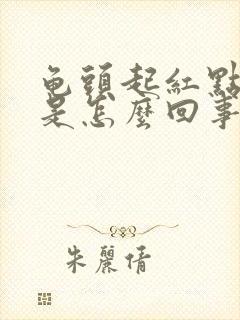 龟頭起紅點
是怎麼回事
朱麗倩